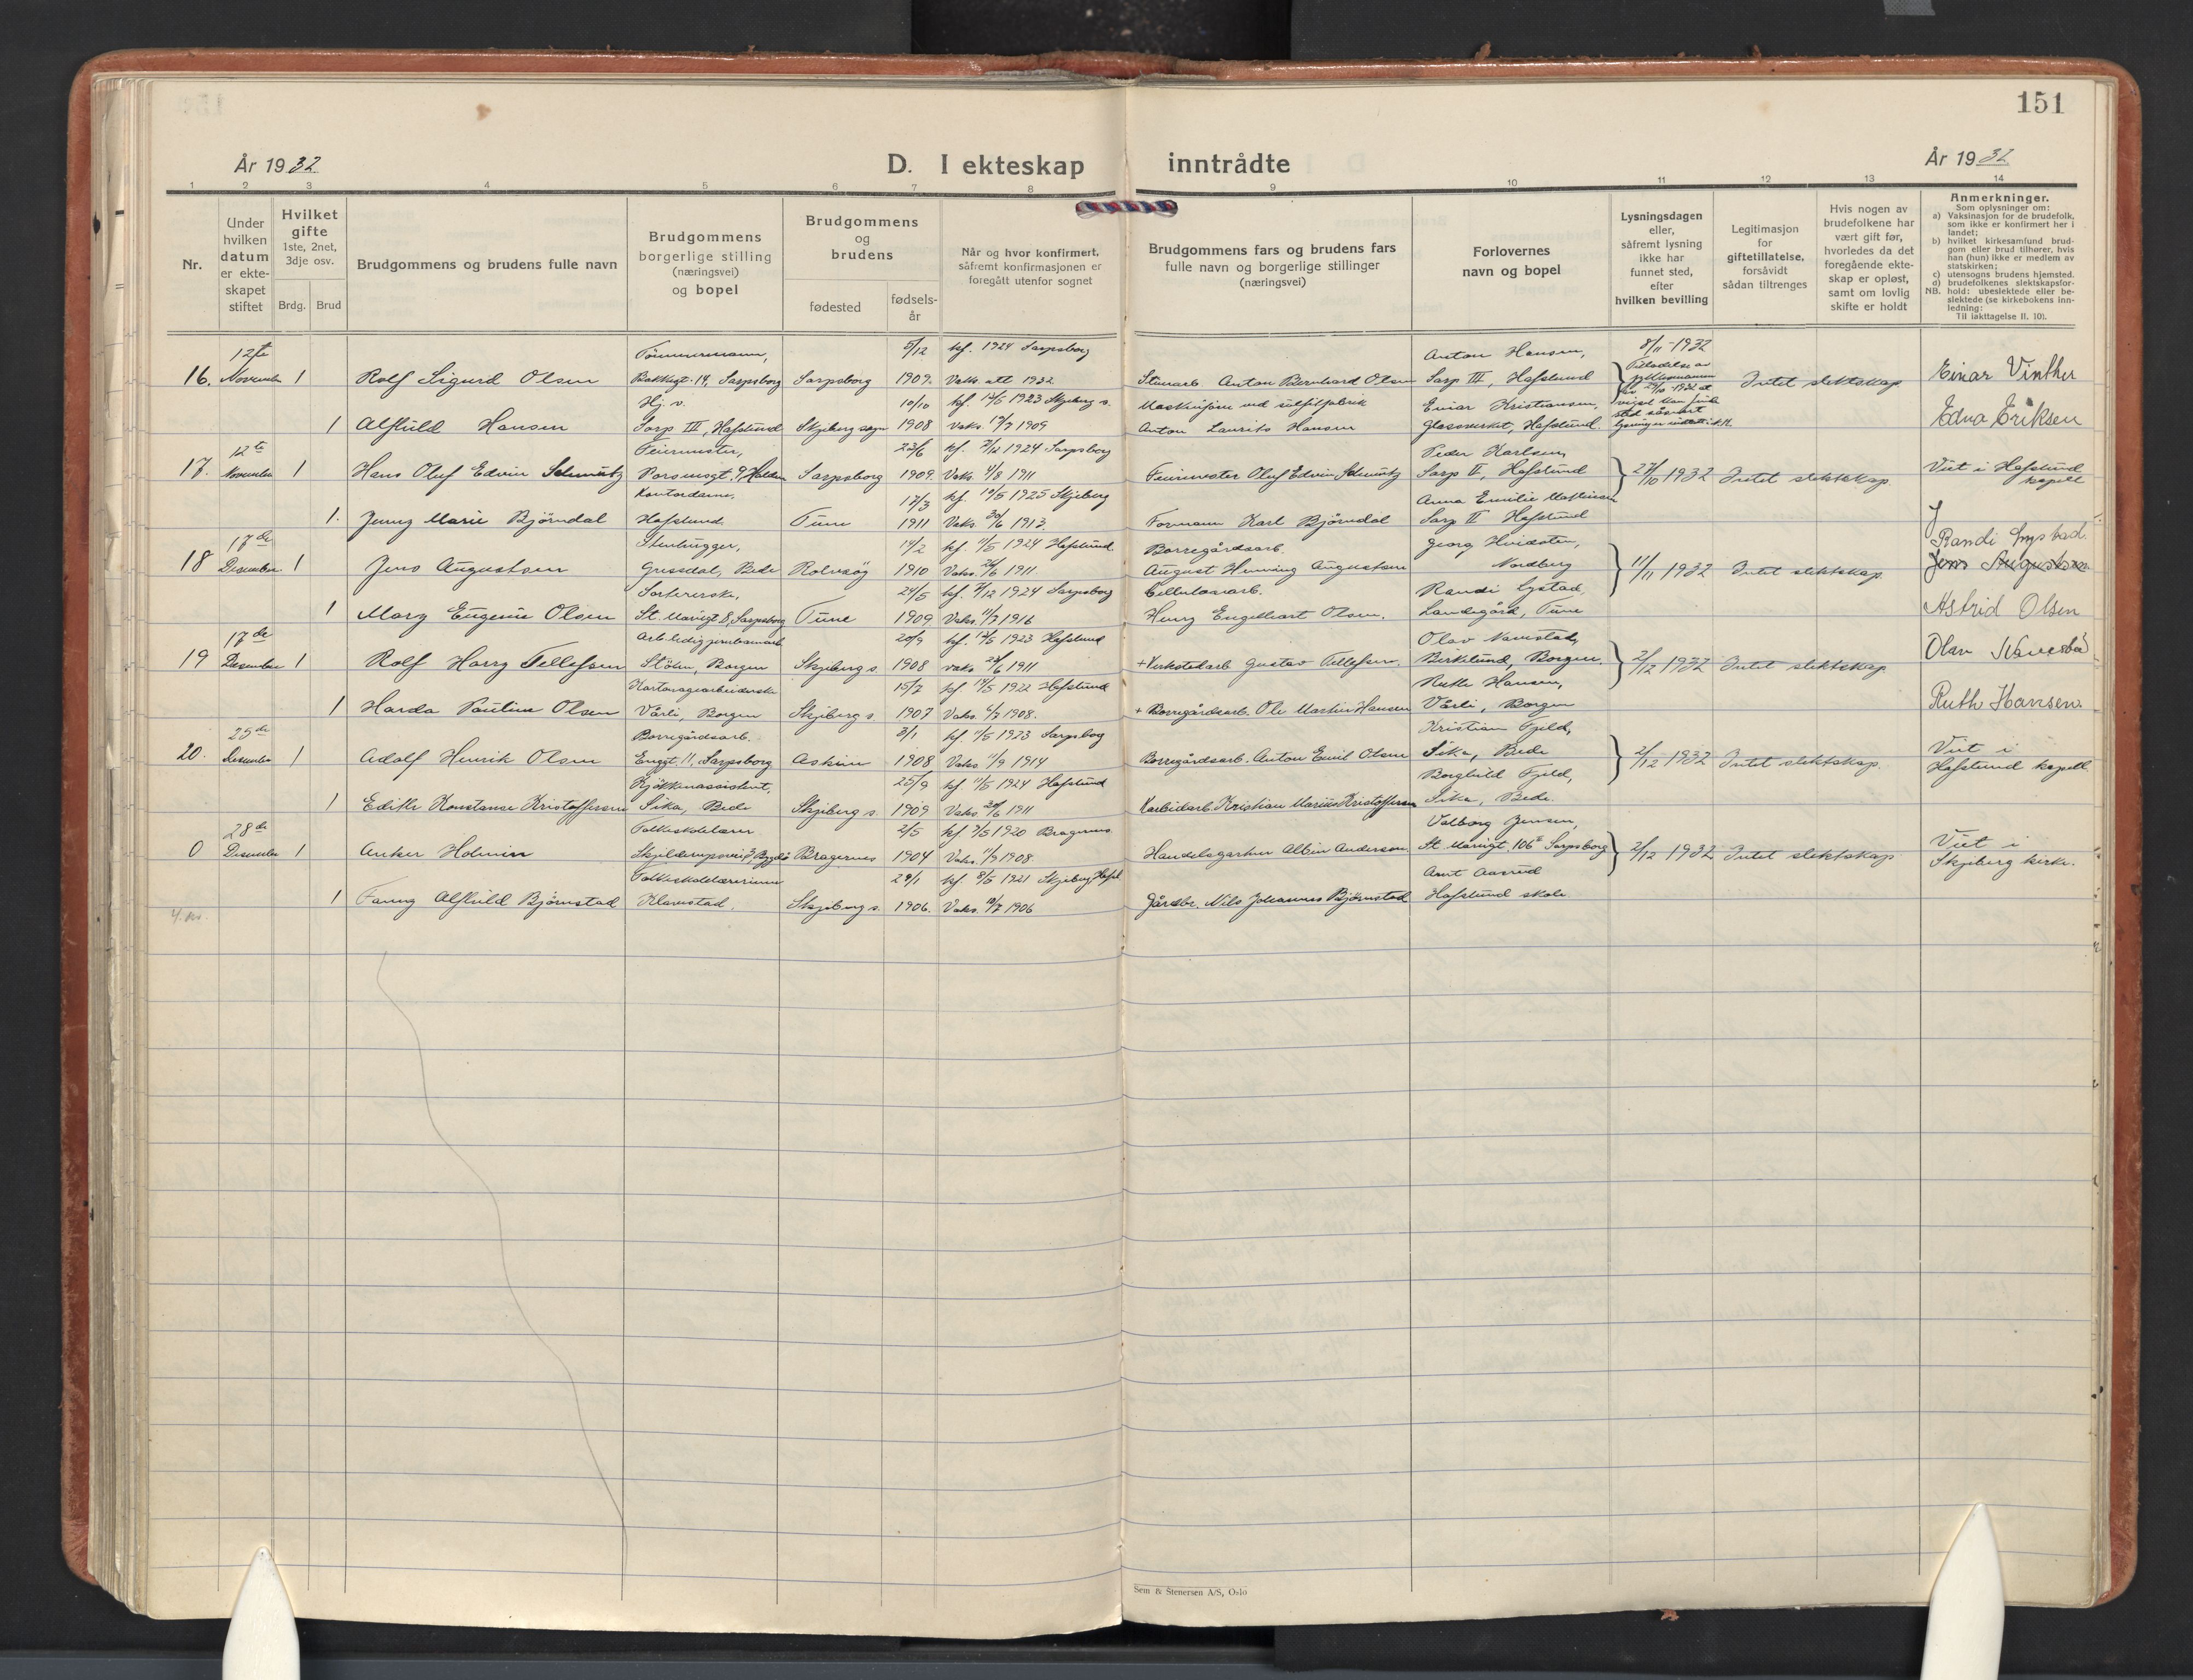 151
År 1932
D. I ekteskap inntrådte
År 1932
1 2 3 4 5 6 7 8 9 10 11 12 13 14
Nr.
Under hvilken datum er ekteskapet stiftet
Hvilket gifte 1ste, 2net, 3dje osv.
Brdg. Brud
Brudgommens og brudens fulle navn
Brudgommens borgerlige stilling (næringsvei) og bopel
Brudgommens og brudens
fødested
fødselsår
Når og hvor konfirmert, såfremt konfirmasjonen er foregått utenfor sognet
Brudgommens fars og brudens fars fulle navn og borgerlige stillinger (næringsvei)
Forlovernes navn og bopel
Lysningsdagen eller, såfremt lysning ikke har funnet sted, efter hvilken bevilling
Legitimasjon for giftetillatelse, forsåvidt sådan tiltrenges
Hvis nogen av brudefolkene har vært gift før, hvorledes da det foregående ekteskap er opløst, samt om lovlig skifte er holdt
Anmerkninger.
Som oplysninger om:
a) Vaksinasjon for de brudefolk, som ikke er konfirmert her i landet;
b) hvilket kirkesamfund brudgom eller brud tilhører, hvis han (hun) ikke er medlem av statskirken;
c) utensogns brudens hjemsted.
d) brudefolkenes slektskapsforhold: ubeslektede eller beslektede (se kirkebokens innledning:
NB.
Til iakttagelse II. 10).
12te Tømmermann, 5/12 kf. 1924 Sarpsborg Anton Hansen, 8/11 - 1932
16. November 1 Rolf Sigurd Olsen Bakkegt. 14, Sarpsborg Sarpsborg 1909. Vaks. att 1932 Stenarb. Anton Bernhard Olsen Sarp III, Hafslund Intet slektskap Einar Vinther
Hj. v. 10/10 kf. 13/5 1923 Skjeberg s. Maskinfører ved sulfitfabrik Einar Kristiansen,
1 Alfhild Hansen Sarp III, Hafslund Skjeberg sogn 1908 Vaks. 19/7 1909 Anton Laurits Hansen Glassverket, Hafslund. Edna Eriksen
12te Feiermester, 23/6 kf. 7/12 1924 Sarpsborg Peder Karlsen,
17. November 1 Hans Oluf Edvin Schmütz Porsnesgt. 9, Halden Sarpsborg 1909. Vaks. 4/8 1911 Feiermester Oluf Edvin Schmütz Sarp II, Hafslund 27/10 1932 Intet slektskap. Viet i Hafslund kapell
Kontordame, 17/3 kf. 10/5 1925 Skjeberg Anna Emilie Mathiesen
1. Jenny Marie Bjørndal Hafslund. Tune 1911 Vaks. 30/6 1913. Formann Karl Bjørndal Sarp II Hafslund
17de Stenhugger, 14/2 kf. 11/5 1924 Hafslund Borregårdsarb. Georg Hvidsten, Randi Lystad.
18 Desember 1 Jens Augustsen Grissdal, Bede Rolvsøy 1910 Vaks. 26/6 1911. August Henning Augustsen Nordberg 11/11 1932 Intet slektskap. Jens Augustsen
Sortererske, 24/5 kf. 7/12 1924 Sarpsborg Cellulosearb. Randi Lystad,
1 Mary Eugenie Olsen St. Mariegt. 8, Sarpsborg Tune 1909 Vaks. 11/7 1916 Henry Engelhart Olsen. Landegård, Tune Astrid Olsen
17de 20/9 kf. 13/5 1923 Hafslund Olav Navestad,
19 Desember 1 Rolf Harry Tellefsen Stølen, Borgen Skjeberg s. 1908 vaks. 28/6 1911 + Verkstedarb Gustav Tellefsen. Birkelund, Borgen. 2/12 1932 Intet slektskap. Olav Navestad
Kartonagearbeiderske 15/7 kf. 14/5 1922 Hafslund Ruth Hansen,
1 Harda Pauline Olsen Vårli, Borgen Skjeberg s. 1907 Vaks. 6/7 1908. + Borregårdsarb. Ole Martin Hansen Vårli, Borgen Ruth Hansen.
25de Borregårdsarb. 3/1 kf. 11/5 1923 Sarpsborg Kristian Fjeld,
20. Desember 1 Adolf Henrik Olsen Enggt. 11, Sarpsborg Askim 1908 Vaks. 11/9 1914 Borregårdsarb. Anton Emil Olsen Sika, Bede 2/12 1932 Intet slektskap. Viet i Hafslund kapell.
Kjøkkenassistent, 25/9 kf. 11/5 1924 Hafslund Borghild Fjeld,
1 Edith Konstanse Kristoffersen Sika, Bede Skjeberg s. 1909 Vaks. 20/6 1911 Karbidarb. Kristian Marius Kristoffersen Sika, Bede.
28de Folkeskolelærer 2/5 kf. 9/5 1920 Bragernes Valborg Jensen,
0 Desember 1 Anker Holmin Bragernes 1904 Vaks. 11/9 1908. Handelsgartner Albin Andersen St. Mariegt. 106 Sarpsborg 2/12 1932 Intet slektskap Viet i Skjeberg kirke.
Folkeskolelærerinne 29/1 kf. 8/5 1921 Skjeberg Arnt Aasrud
1 Fanny Alfhild Bjørnstad Klavestad. Skjeberg s. 1906. Vaks. 18/7 1906 Gårdbr. Nils Johannes Bjørnstad Hafslund skole
Sem & Stenersen A/S, Oslo